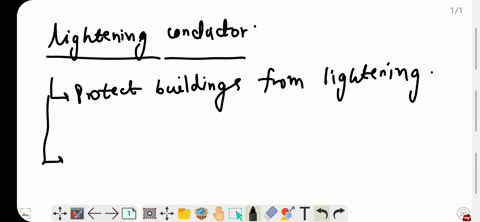 1/1
lightening conductor.
Protect buildings from lightening.